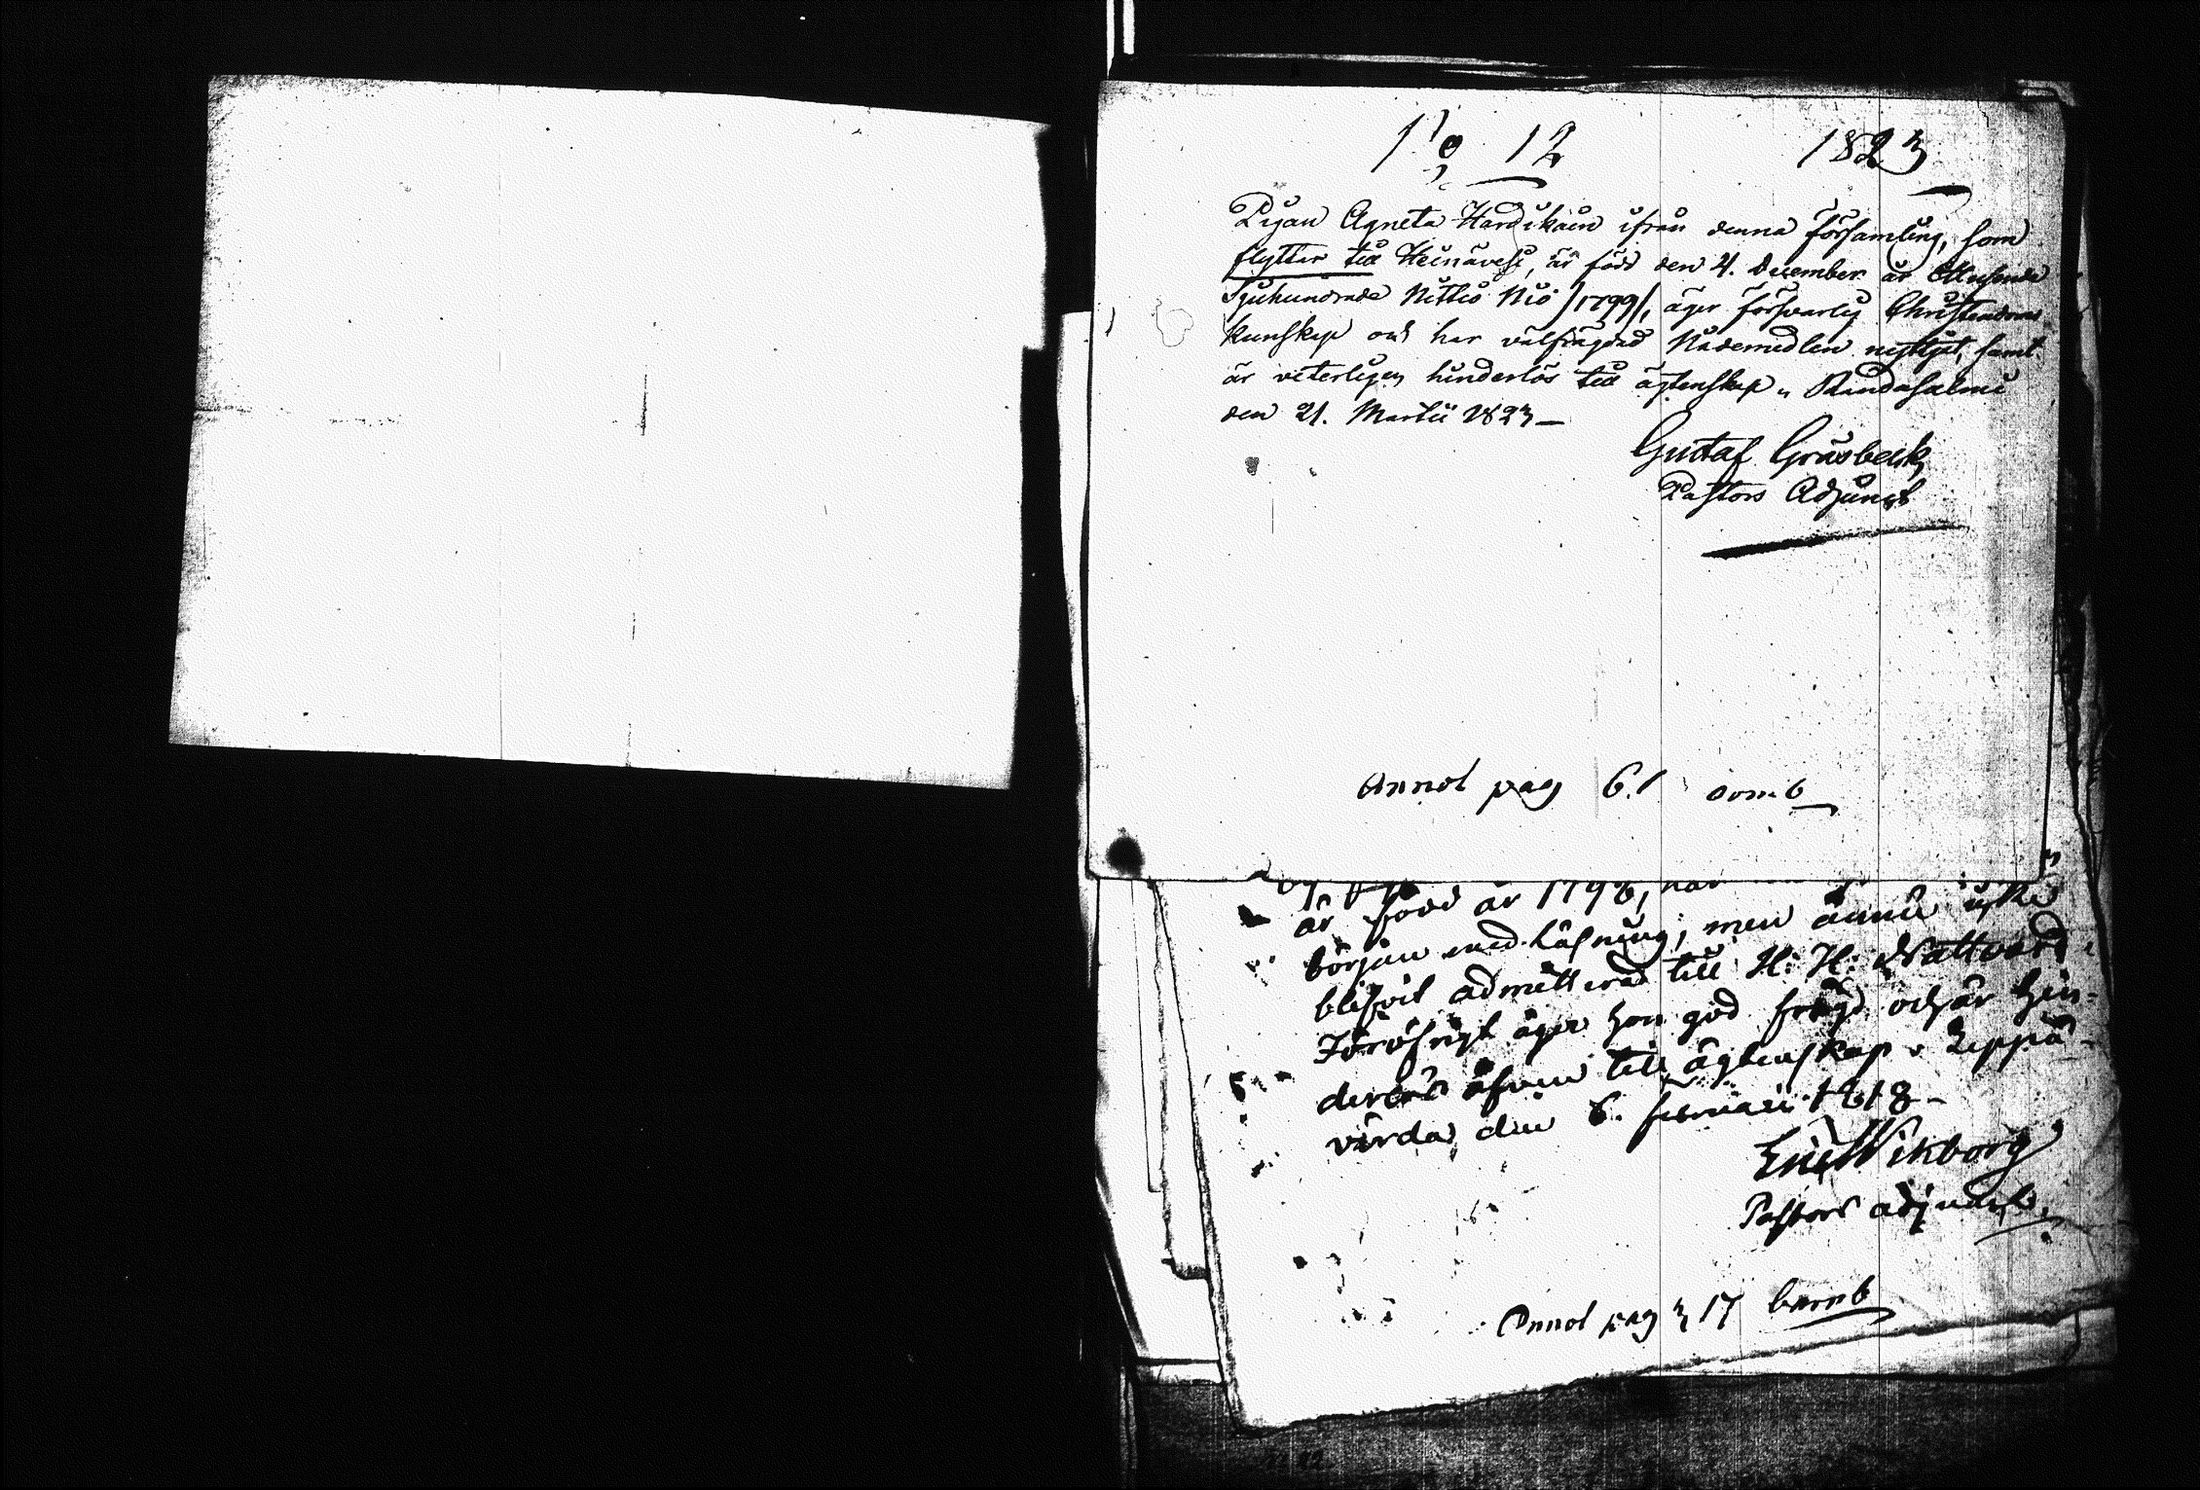 No 12 1823
Pigan Agneta Hardikain ifrån denna församling, som
flyttar till Heinävesi, är född den 4. December år Ettusende
Sjuhundrade Nittio Nio /1799/, äger försvarlig Christendoms
kunskap och har välfrägdad Nådemedlen nyttjat, samt
är veterligen hinderlös till ägtenskap. Randasalmi
den 21. Martii 1823 —
Gustaf Gråsbeck
Pastors Adjunct
Annot pag 61 comb
är född år 1798, har
början med läsning, men ännu icke
blifvit admitterad till H: H: Nattvard
För öfrigt äger hon god frägd och är hin-
derlös äfven till ägtenskap. Leppä-
virda den 6. februari 1818 -
Eric Wikborg
Pastors adjunct.
Annot pag 317 barnb